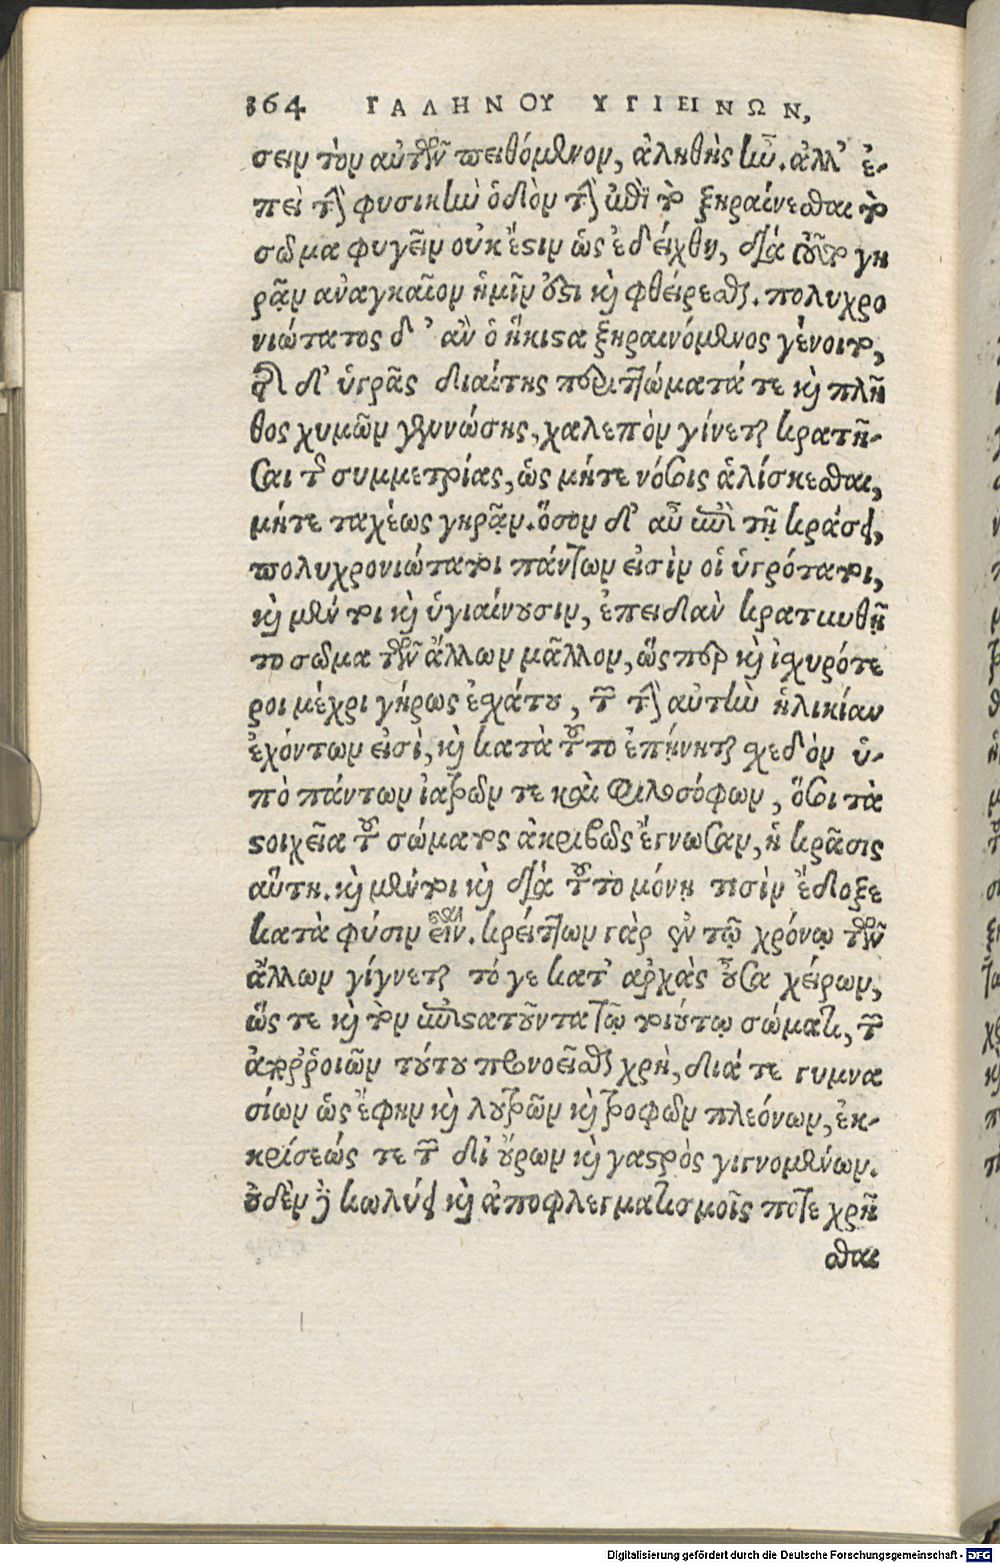 364 ΓΑΛΗΝΟΥ ΥΓΙΕΙΝΩΝ,
σειν τὸν αὐτῶν πειθόμενον, ἀληθὴς ἦν. ἀλλ' ἐ-
πεὶ τὴν φυσικὴν ὁδὸν τὴν ἐπὶ τὸ ξηραίνεσθαι τὸ
σῶμα φυγεῖν οὐκ ἔστιν ὡς ἐδείχθη, διὰ τοῦτο γη
ρᾷν ἀναγκαῖον ἡμῖν ὅστι καὶ φθείρεσθαι. πολυχρο
νιώτατος δ' ἂν ὁ ἥκιστα ξηραινόμενος γένοιτο,
ἐπὶ δ' ὑγρᾶς διαίτης περιττώματά τε καὶ πλῆ
θος χυμῶν γεννώσης, χαλεπὸν γίνεται κρατῆ-
σαι τῆς συμμετρίας, ὡς μήτε νόσοις ἁλίσκεσθαι,
μήτε ταχέως γηρᾷν. ὅσον δ' αὖ ἐπὶ τῇ κράσει,
πολυχρονιώτατοι πάντων εἰσὶν οἱ ὑγρότατοι,
καὶ μέντοι καὶ ὑγιαίνουσιν, ἐπειδὰν κρατυνθῇ
το σῶμα τῶν ἄλλων μᾶλλον, ὥσπερ καὶ ἰσχυρότε
ροι μέχρι γήρως ἐσχάτου, τῶν τὴν αὐτὴν ἡλικίαν
ἐχόντων εἰσὶ, καὶ κατὰ τοῦτο ἐπῄνηται σχεδὸν ὑ-
πὸ πάντων ἰατρῶν τε καὶ φιλοσόφων, ὅσοι τὰ
στοιχεῖα τοῦ σώματος ἀκριβῶς ἔγνωσαν, ἡ κρᾶσις
αὕτη. καὶ μέντοι καὶ διὰ τοῦτο μόνη τισὶν ἔδοξε
κατὰ φύσιν εἶναι. κρείττων γὰρ ἐν τῷ χρόνῳ τῶν
ἄλλων γίγνεται τό γε κατ' ἀρχὰς οὖσα χείρων,
ὥς τε καὶ τὸν ἐπιστατοῦντα τῷ τοιούτῳ σώματι, τῶν
ἀποῤῥοιῶν τούτου προνοεῖσθαι χρὴ, διά τε γυμνα
σίων ὡς ἔφην καὶ λουτρῶν καὶ τροφῶν πλεόνων, ἐκ-
κρίσεώς τε τῶν δι' οὔρων καὶ γαστρὸς γιγνομένων.
οὐδὲν δὲ κωλύει καὶ ἀποφλεγματισμοῖς ποτε χρῆ
σθαι
Digitalisierung gefördert durch die Deutsche Forschungsgemeinschaft - DFG